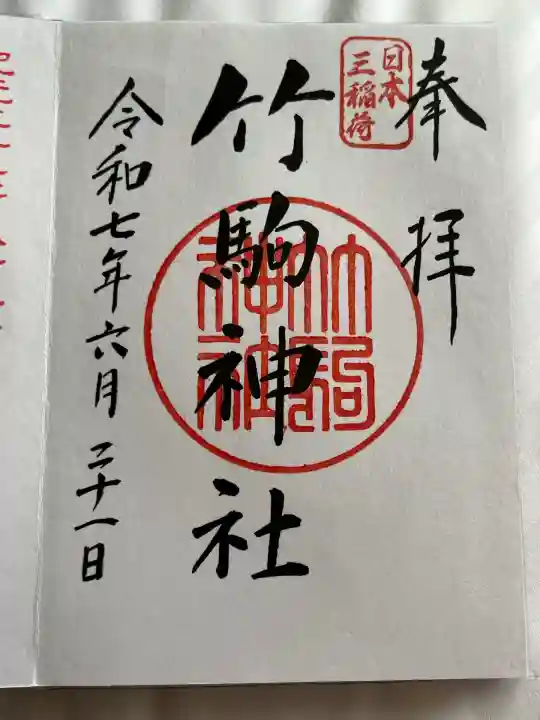 奉拝
日本
三稲荷
竹駒神社
竹駒神社
令和七年六月二十一日